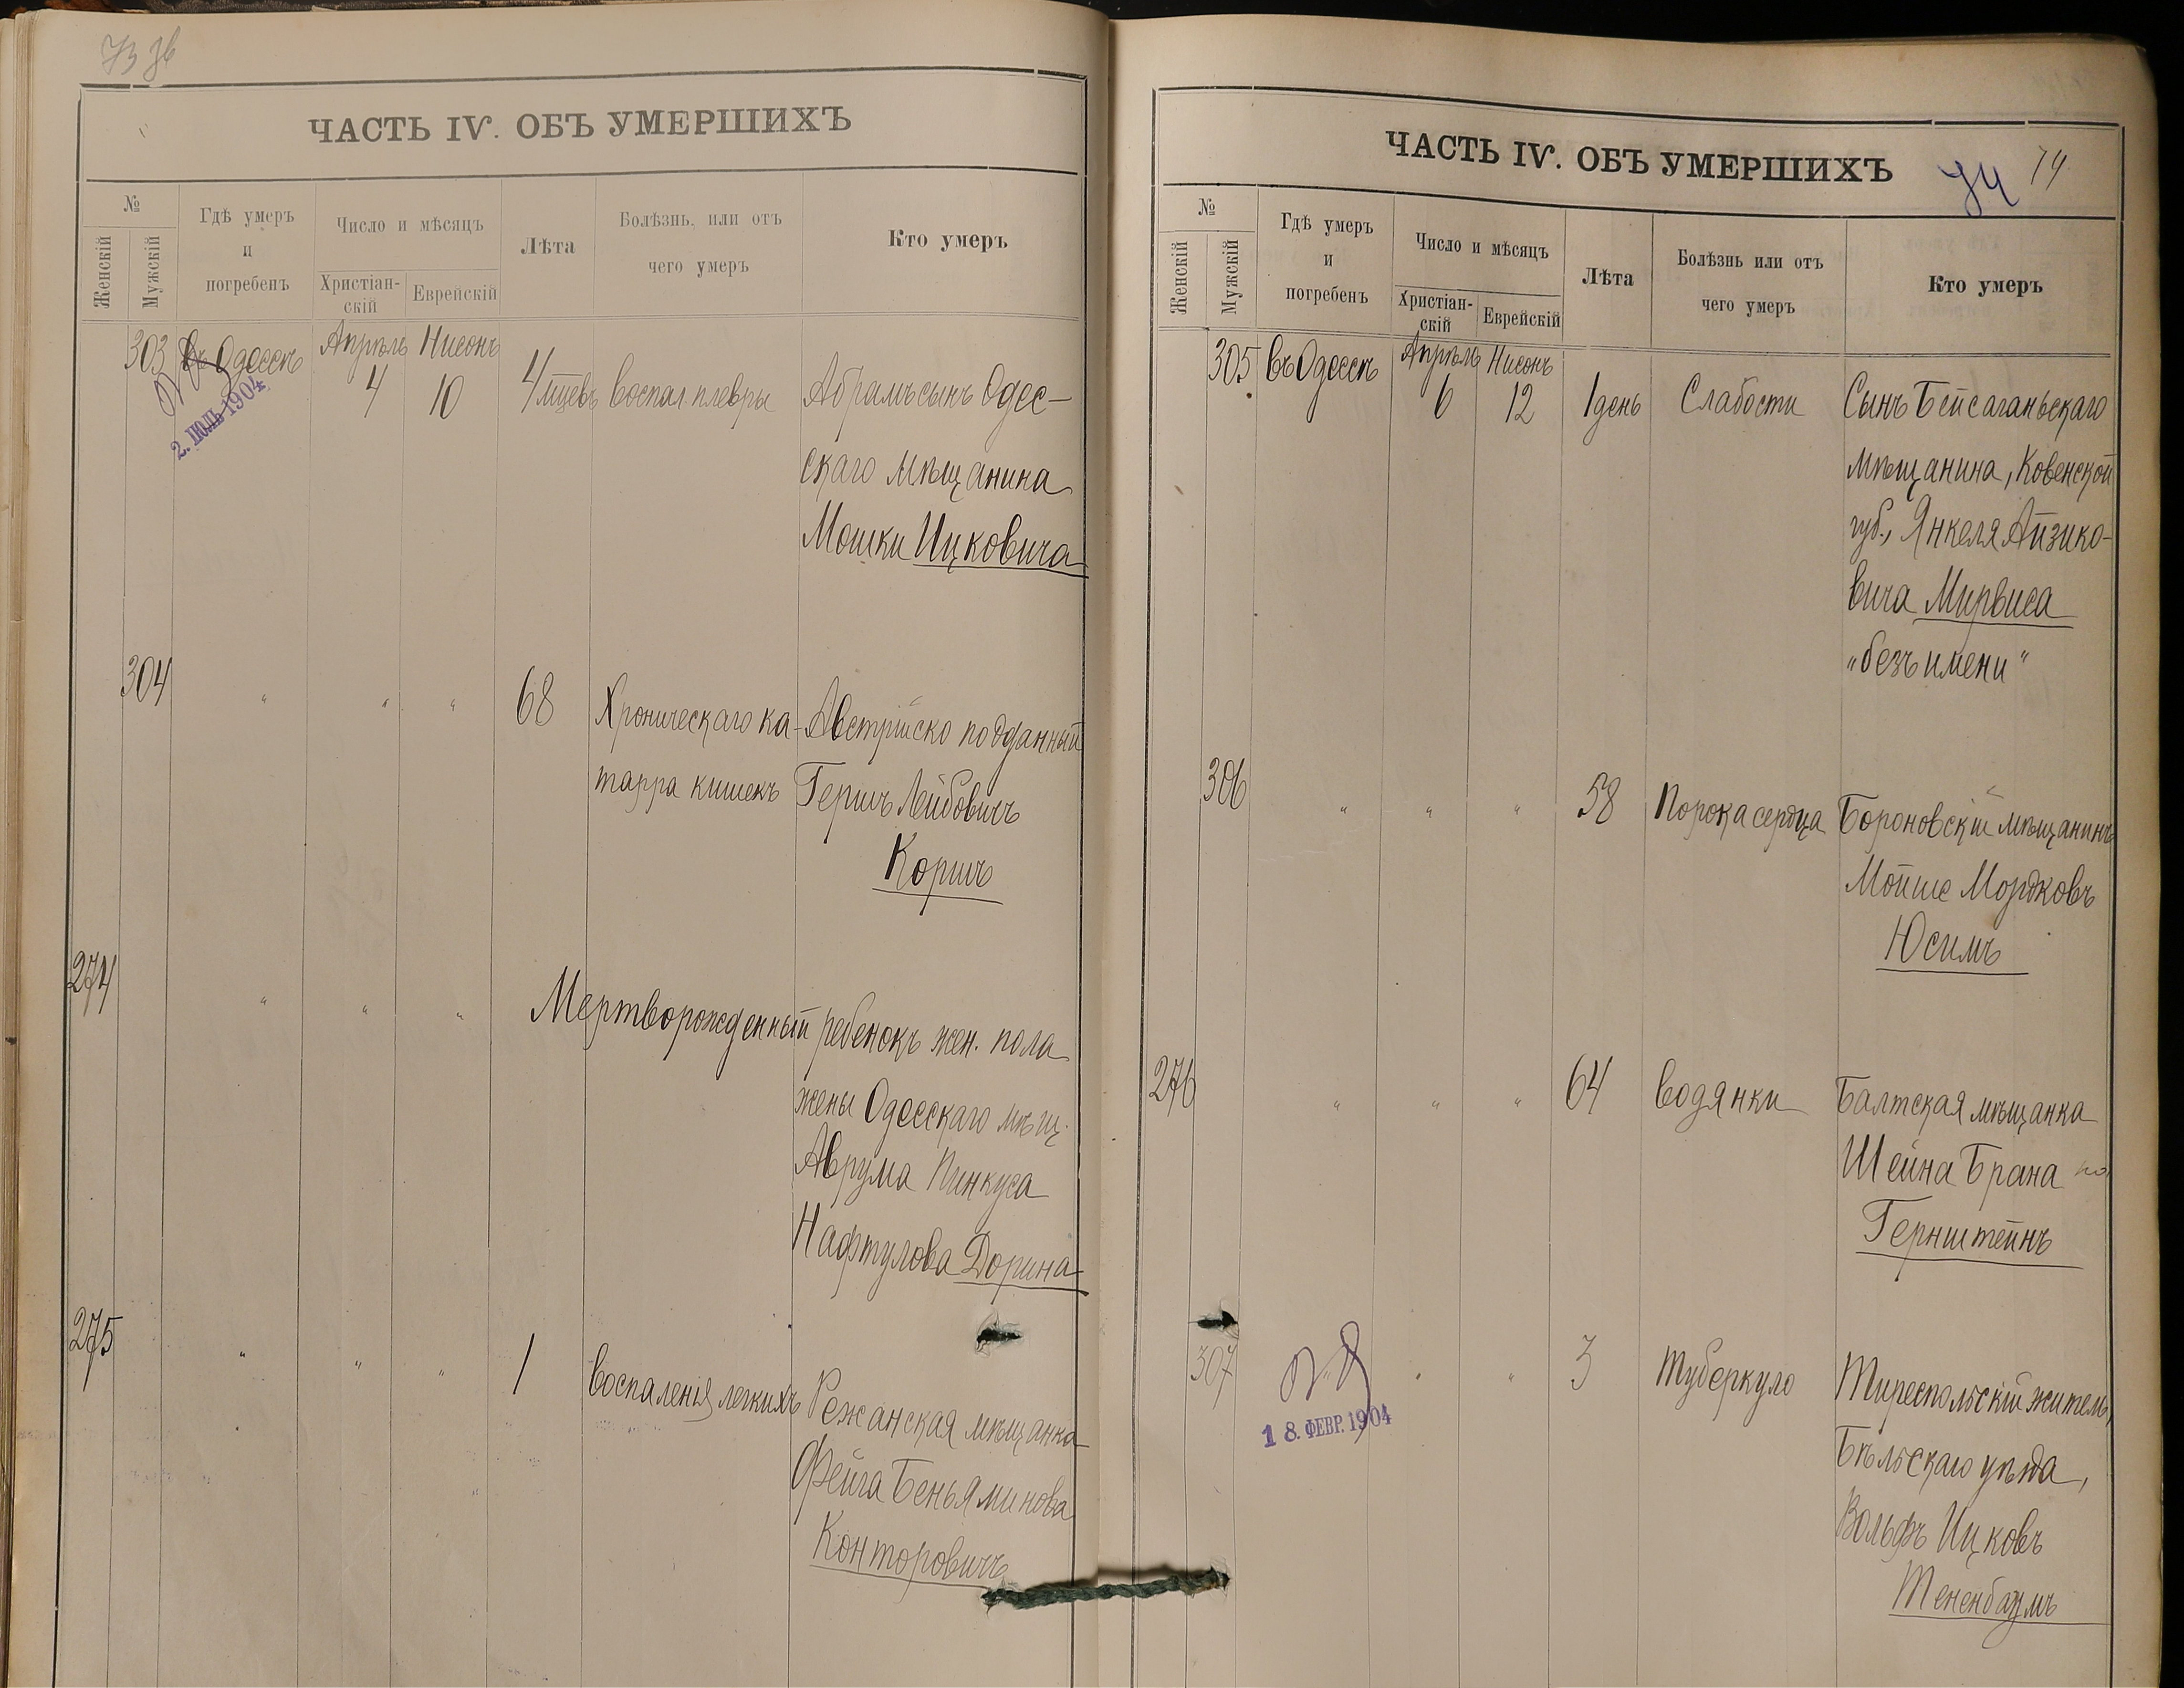 73 об
ЧАСТЬ IV. ОБЪ УМЕРШИХЪ
№
Женскій
Мужскій
Гдѣ умеръ
и
погребенъ
Число и мѣсяцъ
Христіан-
скій
Еврейскій
Лѣта
Болѣзнь, или отъ
чего умеръ
Кто умеръ
303 въ Одессѣ Апрѣль Нисонъ
4 10 4 мцевъ воспал. плевры Абрамъ сынъ Одес-
2. ІЮЛЬ 1904
скаго мѣщанина
Мошки Ицковича
304 " " " 68 Хроническаго ка- Австрійско подданный
тарра кишекъ Гершъ Лейбовичъ
Коршъ
274 " " " Мертворожденный ребенокъ жен. пола
жены Одесскаго мѣщ.
Аврума Пинкуса
Нафтулова Дорина
275 " " " 1 воспаленія легкихъ Режанская мѣщанка
Фейга Беньяминова
Конторовичъ
ЧАСТЬ IV. ОБЪ УМЕРШИХЪ 74 74
№
Женскій
Мужскій
Гдѣ умеръ
и
погребенъ
Число и мѣсяцъ
Христіан-
скій
Еврейскій
Лѣта
Болѣзнь или отъ
чего умеръ
Кто умеръ
305 въ Одессѣ Апрѣль Нисонъ
6 12 1 день Слабости Сынъ Бейсаганьскаго
мѣщанина, Ковенской
губ., Янкеля Айзико-
вича Мирвиса
"безъ имени"
306 " " " 58 Порока сердца Бороновскій мѣщанинъ
Мойше Мордковъ
Юсимъ
276 " " " 64 водянки Балтская мѣщанка
Шейна Брана
Гернштейнъ
307 " " 3 Туберкуло Тирespольскій житель,
18. ФЕВР. 1904
Бѣльскаго уѣзда,
Вольфъ Ицковъ
Тененбаумъ